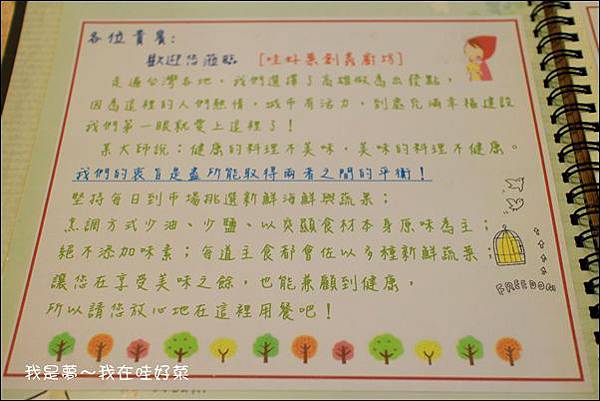 各位貴賓：
歡迎您蒞臨 [哇好菜創義廚坊]
走遍台灣各地，我們選擇了高雄做為出發點，
因為這裡的人們熱情，城市有活力，到處充滿幸福建設
我們第一眼就愛上這裡了！
某大師說：健康的料理不美味，美味的料理不健康。
我們的衷旨是盡所能取得兩者之間的平衡！
堅持每日到市場挑選新鮮海鮮與蔬果；
烹調方式少油、少鹽、以突顯食材本身原味為主；
絕不添加味素；每道主食都會佐以多種新鮮蔬菜；
讓您在享受美味之餘，也能兼顧到健康，
所以請您放心地在這裡用餐吧！
FREEDOM
我是夢～我在哇好菜